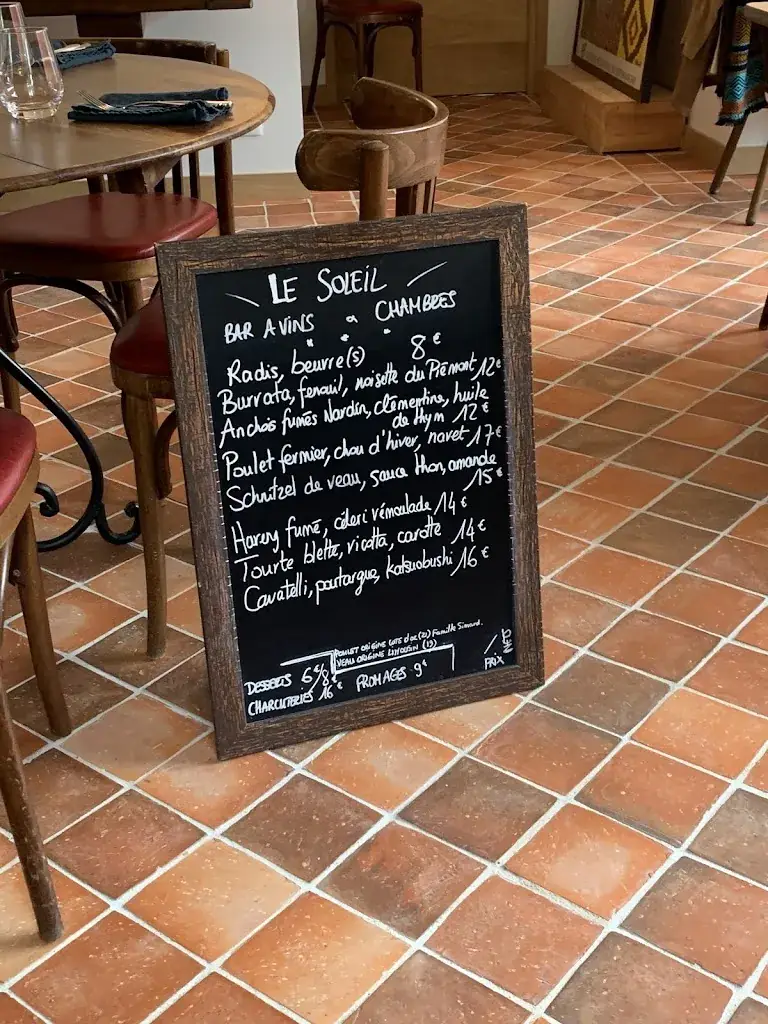 LE SOLEIL
BAR A VINS " CHAMBRES
Radis, beurre(s) 8€
Burrata, fenouil, noisette du Piémont 12€
Anchois fumés Nardin, clémentine, huile
de thym 12€
Poulet fermier, chou d'hiver, navet 17€
Schnitzel de veau, sauce thon, amande
15€
Hareng fumé, céleri rémoulade 14€
Tourte blette, ricotta, carotte 14€
Cavatelli, poutargue, katsuobushi 16€
POULET ORIGINE Famille Simard.
VEAU ORIGINE LIMOUSIN (19)
DESSERTS 6€/8€ FROMAGES 9€
CHARCUTERIES 16€
PRIX NETS